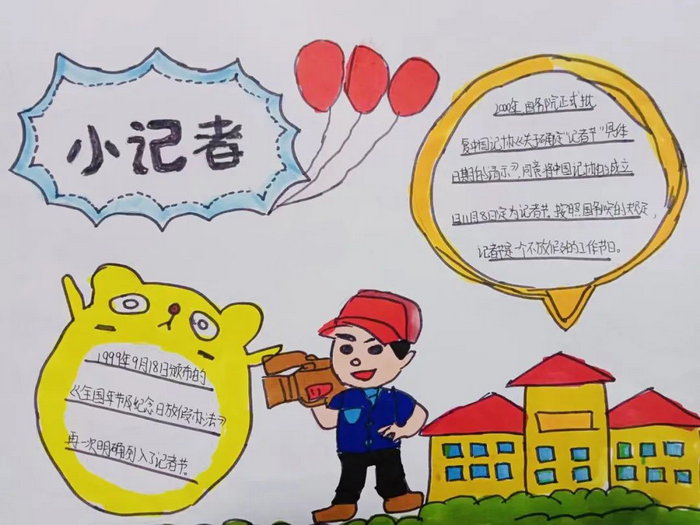 小记者
2000年,国务院正式批
复中国记协《关于确定"记者节"具体
日期的请示》,同意将中国记协的成立
日11月8日定为记者节。按照国务院的规定,
记者节是一个不放假的工作节日。
1999年9月18日颁布的
《全国年节及纪念日放假办法》
再一次明确列入了记者节。